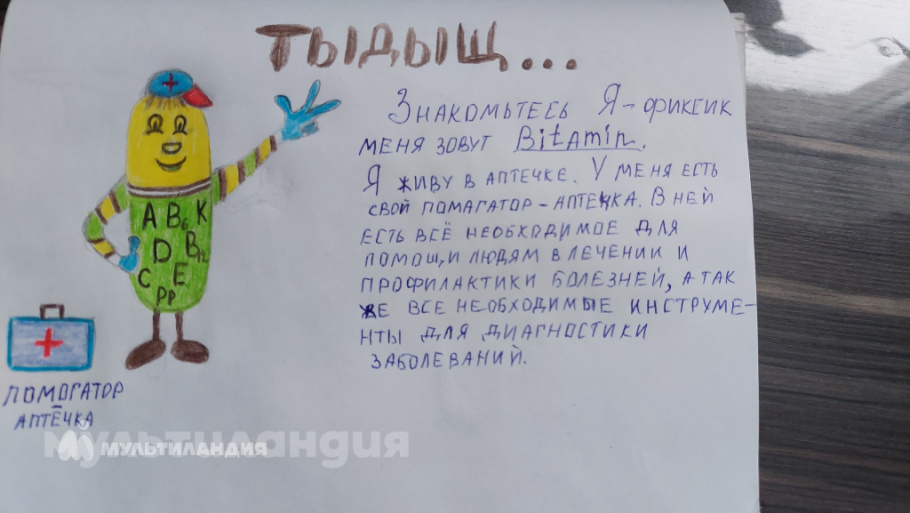 ТЫДЫЩ...
Знакомьтесь Я - фиксик
меня зовут Bitamin.
Я живу в аптечке. У меня есть
свой помагатор - аптечка. В ней
есть всё необходимое для
помощи людям в лечении и
профилактики болезней, а так
же все необходимые инструме-
нты для диагностики
заболеваний.
A B6 K
D B12
C E
PP
ПОМОГАТОР
АПТЕЧКА
мультиландия
МУЛЬТИЛАНДИЯ